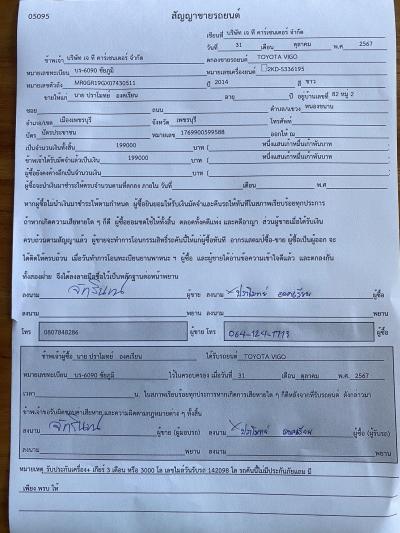 05095
สัญญาขายรถยนต์
เขียนที่ บริษัท เจ ที คาร์เซนเตอร์ จำกัด
วันที่ 31 เดือน ตุลาคม พ.ศ. 2567
ข้าพเจ้า บริษัท เจ ที คาร์เซนเตอร์ จำกัด ตกลงขายรถยนต์ TOYOTA VIGO
หมายเลขทะเบียน บร-6090 ชัยภูมิ หมายเลขเครื่องยนต์ 2KD-S336195
หมายเลขตัวถัง MR0GR19GX07430511 ปี 2014 สี ขาว
ขายให้แก่ นาย ปราโมทย์ องคเรียน อายุ ปี อยู่บ้านเลขที่ 82 หมู่ 2
ซอย ถนน ตำบล/แขวง หนองขนาน
อำเภอ/เขต เมืองเพชรบุรี จังหวัด เพชรบุรี โทรศัพท์
บัตร บัตรประชาชน หมายเลข 1769900599588 ออกให้ ณ
เป็นจำนวนเงินทั้งสิ้น 199000 บาท ( หนึ่งแสนเก้าหมื่นเก้าพันบาท
ข้าพเจ้าได้รับมัดจำแล้วเป็นเงิน 199000 บาท ( หนึ่งแสนเก้าหมื่นเก้าพันบาท
ผู้ซื้อยังคงค้างอีกเป็นจำนวนเงิน บาท (
ผู้ซื้อจะนำเงินมาชำระให้ครบจำนวนตามที่ตกลง ภายใน วันที่ เดือน พ.ศ.
หากผู้ซื้อไม่นำเงินมาชำระให้ตามกำหนด ผู้ซื้อยินยอมให้ริบเงินมัดจำและคืนรถให้ทันทีในสภาพเรียบร้อยทุกประการ
ถ้าหากเกิดความเสียหายใด ๆ ก็ดี ผู้ซื้อยอมชดใช้ให้ทั้งสิ้น ตลอดทั้งคดีแพ่ง และคดีอาญา ส่วนผู้ขายเมื่อได้รับเงิน
ครบถ้วนตามสัญญาแล้ว ผู้ขายจะทำการโอนกรรมสิทธิ์รถคันนี้ให้แก่ผู้ซื้อทันที อากรแสตมป์ซื้อ-ขาย ผู้ซื้อเป็นผู้ออก จะ
ได้คิดให้ครบถ้วน เมื่อวันทำการโอนทะเบียนยานพาหนะ ฯ ผู้ซื้อ และผู้ขายได้อ่านข้อความเข้าใจดีแล้ว และตกลงกัน
ทั้งสองฝ่าย จึงได้ลงลายมือชื่อไว้เป็นหลักฐานต่อหน้าพยาน
ลงนาม จักรินทน์ ผู้ขาย ลงนาม ปราโมทย์ องคเรียน ผู้ซื้อ
ลงนาม พยาน ลงนาม พยาน
โทร 0807848286 ผู้ขาย โทร 064-124-7779 ผู้ซื้อ
ข้าพเจ้าผู้ซื้อ นาย ปราโมทย์ องคเรียน ได้รับรถยนต์ TOYOTA VIGO
หมายเลขทะเบียน บร-6090 ชัยภูมิ ไว้ในครอบครอง เมื่อวันที่ 31 เดือน ตุลาคม พ.ศ. 2567
เวลา น. ในสภาพเรียบร้อยทุกประการหากเกิดการเสียหายใด ๆ ก็ดีหลังจากที่รับรถยนต์ ดังกล่าวมา
ข้าพเจ้าขอรับผิดชอบค่าเสียหาย และความผิดตามกฎหมายต่าง ๆ ทั้งสิ้น
ลงนาม จักรินทน์ ผู้ขาย (ผู้มอบรถ) ลงนาม ปราโมทย์ องคเรียน ผู้ซื้อ (ผู้รับรถ)
ลงนาม พยาน ลงนาม พยาน
หมายเหตุ รับประกันเครื่อง+ เกียร์ 3 เดือน หรือ 3000 โล เลขไมล์วันรับรถ 142098 โล รถคันนี้ไม่มีประกันภัยแถม มี
เพียง พรบ ให้